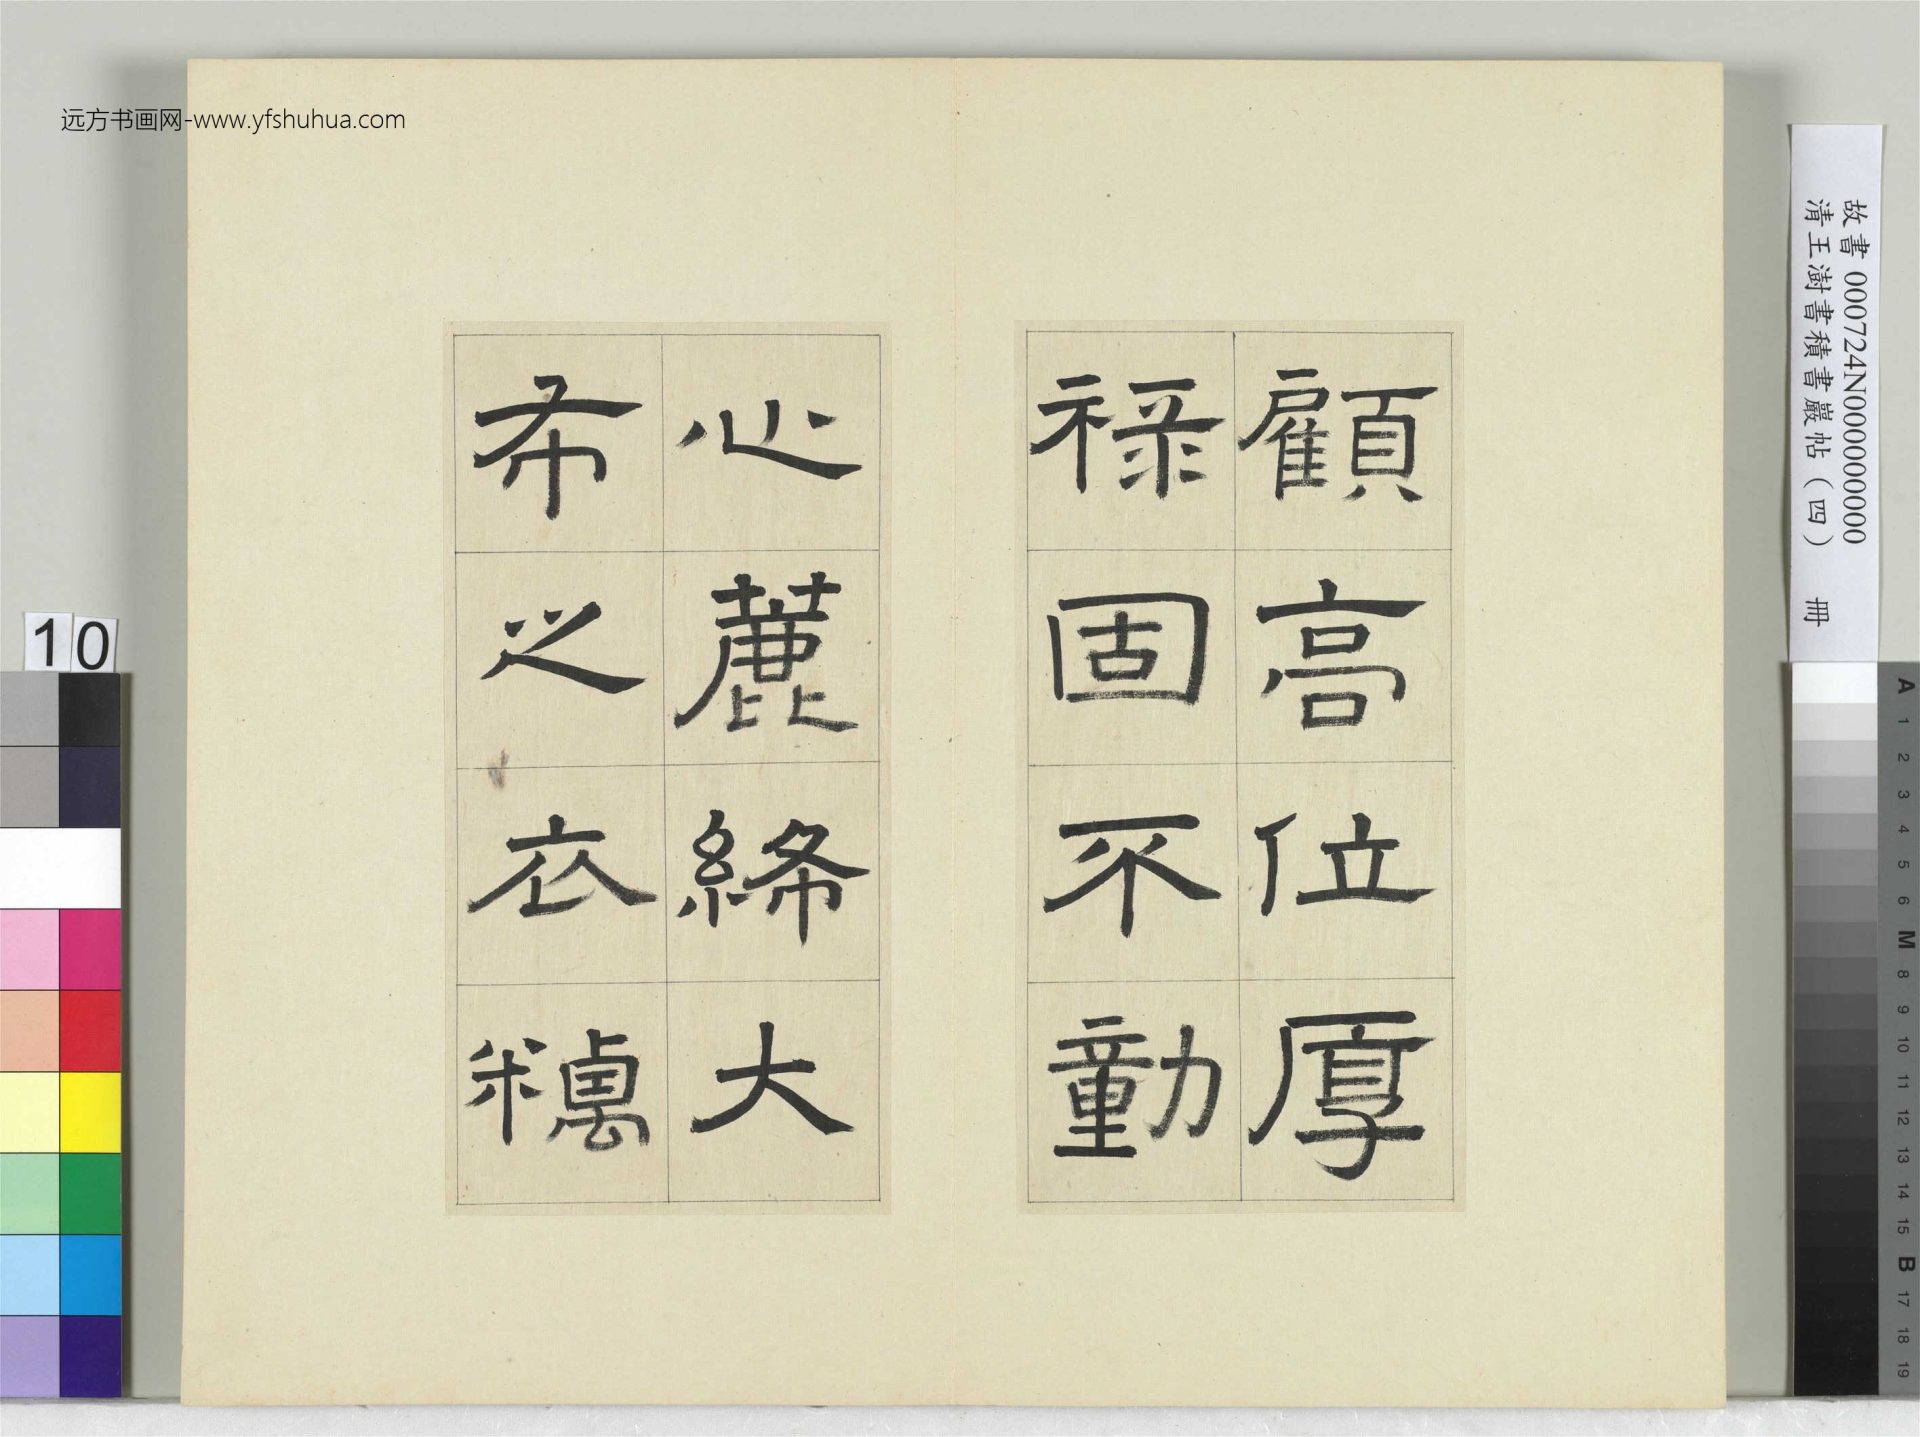 远方书画网-www.yfshuhua.com
故書 000724N000000000
清王澍書積書巖帖（四） 冊
顧高位厚
祿固不動
心麤絺大
布之衣糲
10
A 1 2 3 4 5 6 M 8 9 10 11 12 13 14 15 B 17 18 19